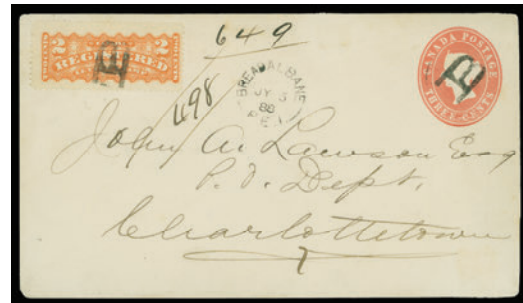 649
2 REGISTERED 2
R
BREADALBANE
JY 5
86
P.E.I
CANADA POSTAGE
THREE CENTS
R
498
John A. Lawson Esq
P.O. Dept.
Charlottetown